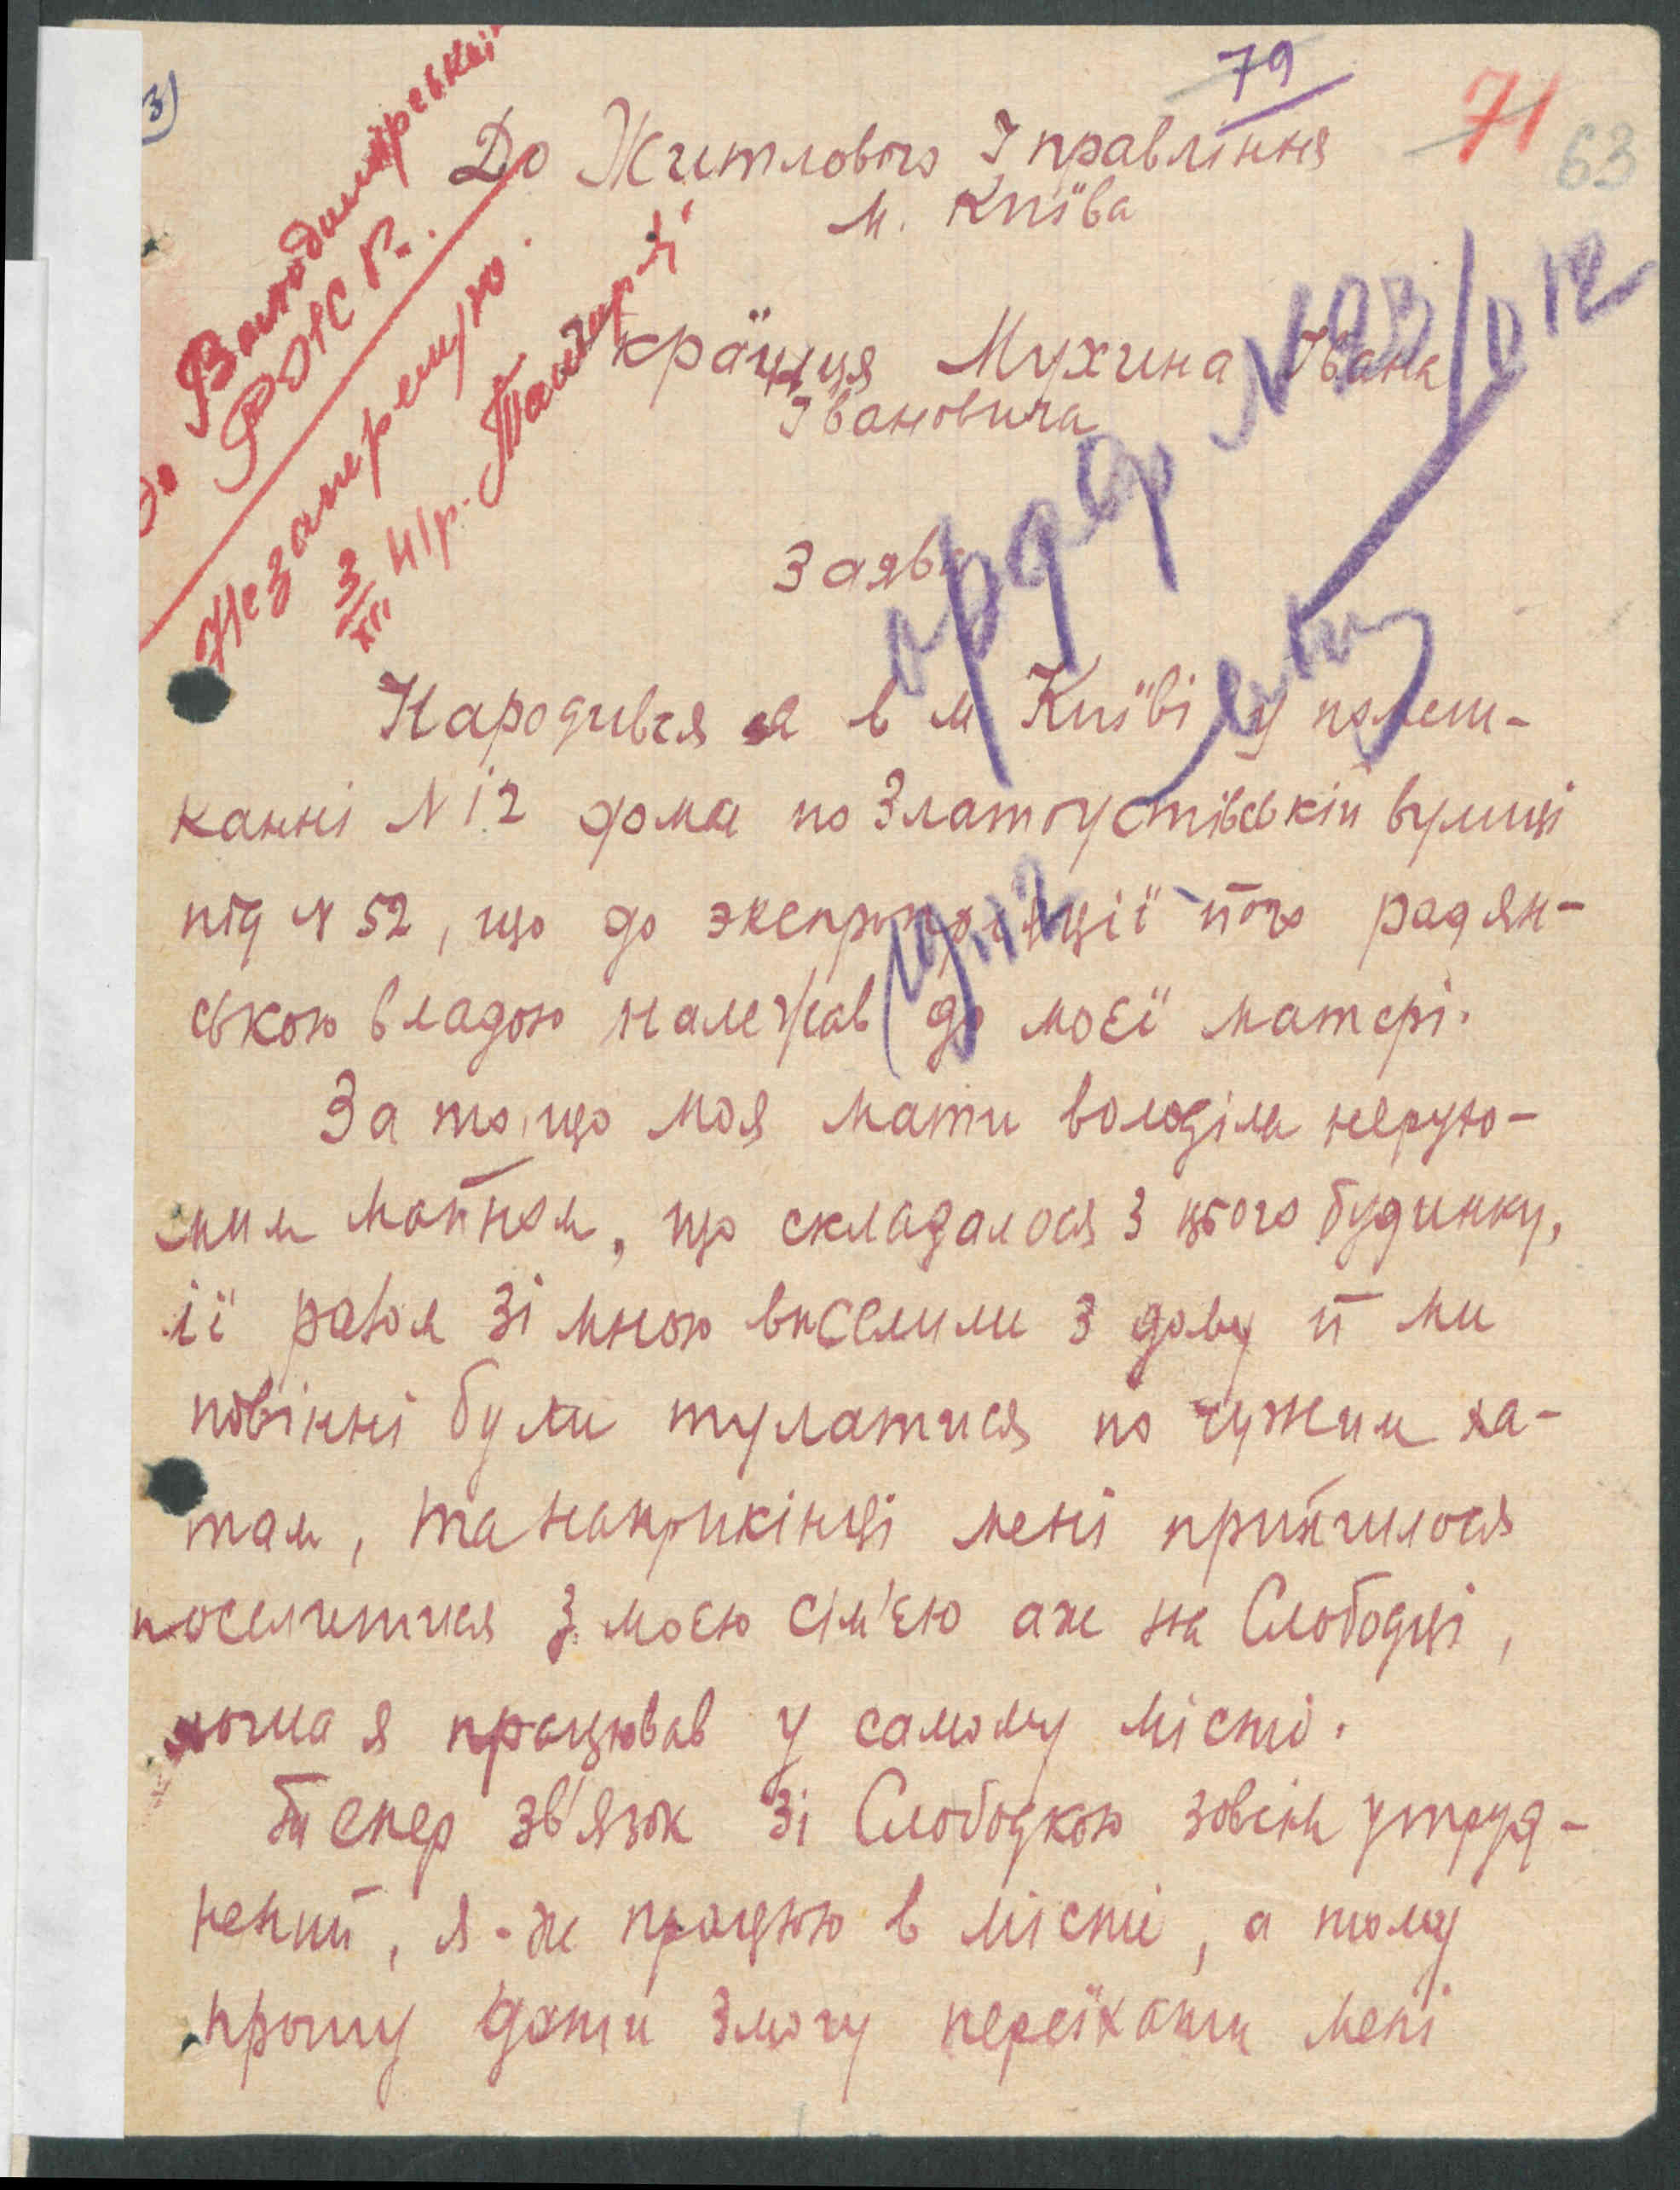 3)
79
71
63
До Житлового Управління
м. Київа
Українця Мухина Івана
Івановича
Заява
ордер №
Народився я в м Київі у помеш-
канні № 12 дома по Златоустівській вулиці
під № 52, що до экспропріяції його радян-
ською владою належав до моєї матері.
За то, що моя мати володіла нерухо-
мим майном, що складалося з цього будинку,
її разом зі мною виселили з дому й ми
повінні були тулатися по чужим ха-
там, та наприкінці мені прийшлося
поселитися з моєю сім'єю аж на Слободці,
хоча я працював у самому місті.
Тепер зв'язок зі Слободкою зовсім утруд-
нений, я-ж працюю в місті, а тому
прошу дати змогу переїхати мені
До Володимирської
РЖС Р.
Не заперечую.
3/XII